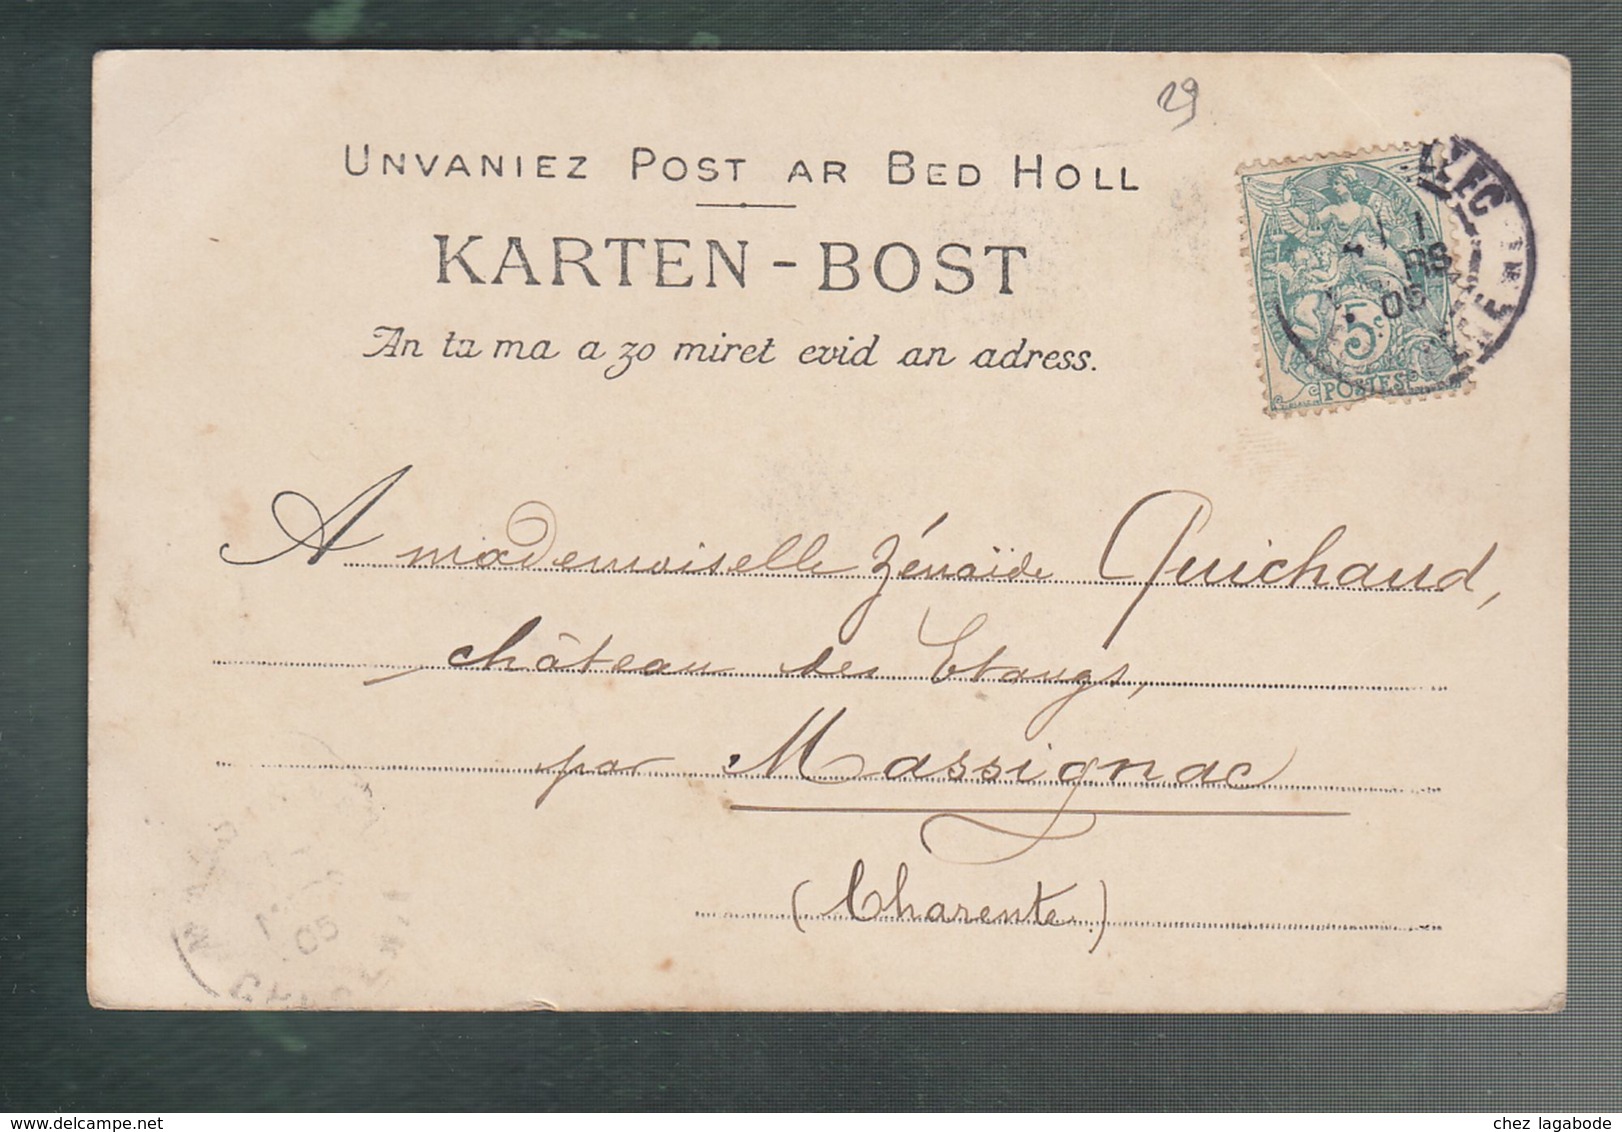 29
UNVANIEZ POST AR BED HOLL
KARTEN-BOST
An tu ma a zo miret evid an adress.
5c
POSTES
05
A mademoiselle Zénaïde Quichaud,
château des Etangs,
par Massignac
(Charente)
05
chez lagabode